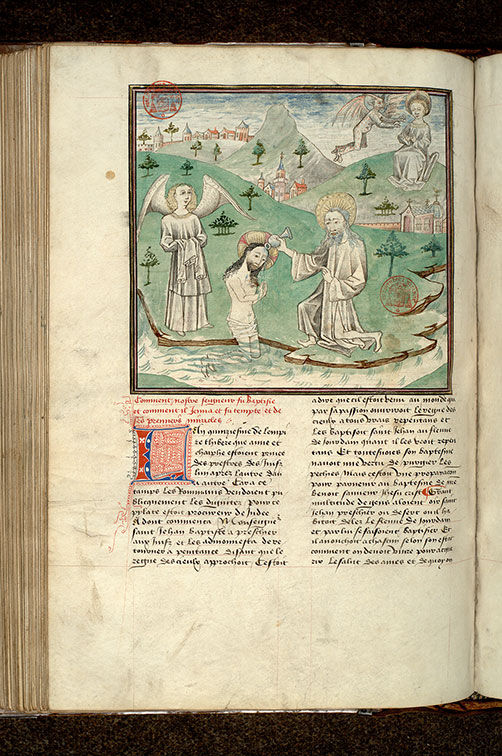 Comment nostre seigneur fu baptisie
et comment il jeuna et fu tempte et de
ses premiers miracles
Lan quinziesme de lempi
re thibere que anne et
chayphe estoient princes
des prestres des juifz
lun apres lautre Car a ce
tamps les Rommains vendoient pu
blicquement les dignitez Ponce
pylate estoit procureur de Judee
Adont commenca Monseigneur
saint Jehan baptiste a preschier
aux juifz et les admonnesta de re
tourner a penitance disant que le
regne des cieulx approchoit Cestoit
a dire que cil estoit venu au monde qui
par sa passion ouvriroit le regne des
cieulx a tous vrais repentans et
les baptisoit saint Jehan au fleuve
de Jourdain quant il les veoit repen
tans Et touteffoies son baptesme
navoit mie vertu de purgier les
pechies Mais cestoit une preparacion
pour parvenir au baptesme de nre
benoit sauveur Jhesu crist Grant
multitude de gens aloient oir saint
Jehan preschier ou desert ou il ha
bitoit deles le fleuve de Jourdain
et par lui se faisoient baptisier Et
il anonchoit a chascun selon son estat
comment on devoit vivre pour acque
rir le salut des ames et de quoy on